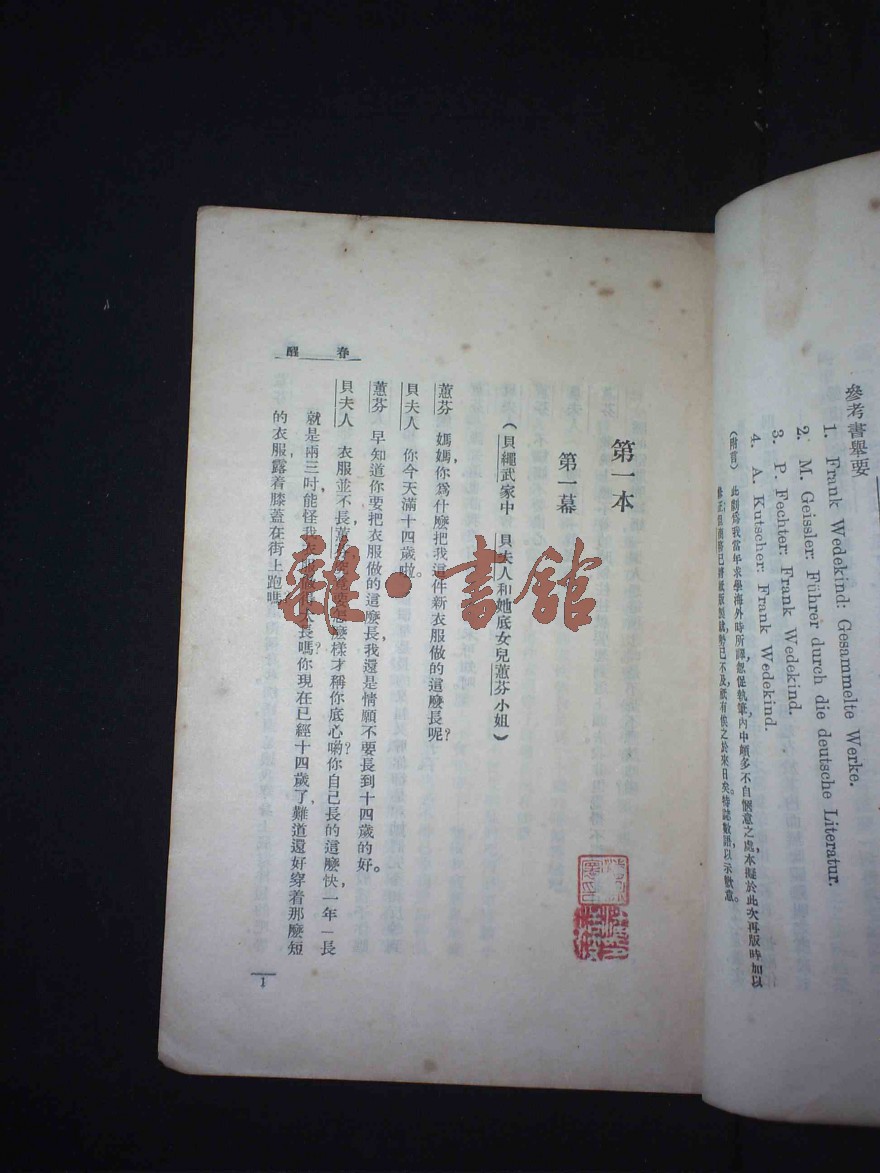 參考書舉要
1. Frank Wedekind: Gesammelte Werke.
2. M. Geissler: Führer durch die deutsche Literatur.
3. P. Fechter: Frank Wedekind.
4. A. Kutscher: Frank Wedekind.
(附言) 此劇爲我當年求學海外時所譯，怱促執筆，內中頗多不自愜意之處，本擬於此次再版時加以
修正，但
不及，祇有俟之於來日矣。特誌數語，以示歉意。
第一本
第一幕
(貝繩武家中 貝夫人和她底女兒蕙芬小姐)
蕙芬 媽媽，你爲什麼把我這件新衣服做的這麼長呢?
貝夫人 你今天滿十四歲啦。
蕙芬 早知道你要把衣服做的這麼長，我還是情願不要長到十四歲的好。
貝夫人 衣服並不長，蕙芬，怎麼樣才稱你底心喲?你自己長的這麼快，一年一長
就是兩三吋，能怪我長嗎?你現在已經十四歲了，難道還好穿着那麼短
的衣服露着膝蓋在街上跑嗎
春醒
1
雜·書館